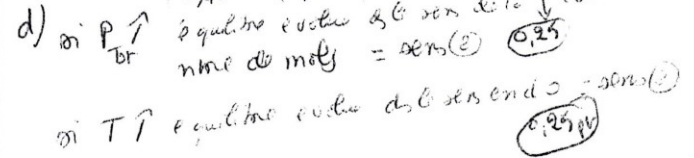 d) si P_Tr ↑ équilibre évolue ds le sens de la
nbre de mols = sens (2) 0,25
si T ↑ équilibre évolue ds le sens endo = sens (2)
0,25 pt